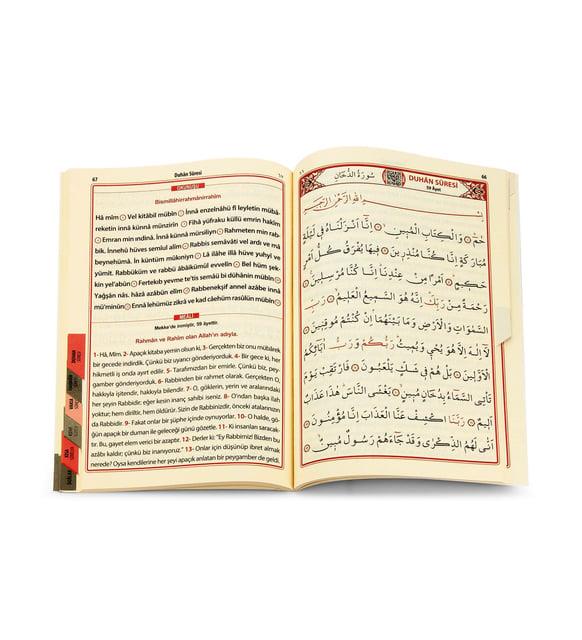 67
Duhân Sûresi
OKUNUŞU
Bismillâhirrahmânirrahîm
Hâ mîm. Vel kitâbil mübîn. İnnâ enzelnâhü fî leyletin mübâ-
reketin innâ künnâ münzirîn. Fîhâ yüfraku küllü emrin hakîm
Emran min indinâ. İnnâ künnâ mürsiliyn. Rahmeten min rab-
bik. İnnehû hüves semîul alîm. Rabbis semâvâti vel ardı ve mâ
beynehümâ. İn küntüm mûkıniyn. Lâ ilâhe illâ hüve yuhyî ve
yümît. Rabbüküm ve rabbü âbâikümül evvelîn. Bel hüm şek-
kin yel'abûn. Fertekıb yevme te'tis semâü bi dühânin mübîn
Yağşân nâs, hâzâ azâbün elîm. Rabbenekşif annel azâbe innâ
mü'minûn. Ennâ lehümüz zikrâ ve kad câehüm rasûlün mübîn
MEÂLİ
Mekke'de inmiştir. 59 âyettir.
Rahmân ve Rahîm olan Allah'ın adıyla.
1- Hâ, Mîm. 2- Apaçık kitaba yemin olsun ki, 3- Gerçekten biz onu mübârek
bir gecede indirdik. Çünkü biz uyarıcı gönderiyorduk. 4- Bir gece ki, her
hikmetli iş onda ayırt edilir. 5- Tarafımızdan bir emirle. Çünkü biz, pey-
gamber gönderiyorduk. 6- Rabbinden bir rahmet olarak. Gerçekten O,
hakkıyla işitendir, hakkıyla bilendir. 7- O, göklerin, yerin ve aralarındaki
her şeyin Rabbidir; eğer kesin inanç sahibi iseniz. 8- O'ndan başka ilah
yoktur; hem diriltir, hem öldürür. Sizin de Rabbinizdir, önceki atalarınızın
da Rabbidir. 9- Fakat onlar bir şüphe içinde oynuyorlar. 10- O halde, gö-
ğün apaçık bir duman ile geleceği günü gözetle. 11- Ki insanları saracak-
tır. Bu, gayet elem verici bir azaptır. 12- Derler ki: "Ey Rabbimiz! Bizden bu
azâbı kaldır; çünkü biz inanıyoruz." 13- Onlar için düşünüp ibret almak
nerede? Oysa kendilerine her şeyi apaçık anlatan bir peygamber de geldi.
66
DUHÂN SÛRESİ
59 Âyet
سُورَةُ الدُّخَانِ
بِسْمِ اللّٰهِ الرَّحْمٰنِ الرَّحِيمِ
حٰمٓ وَالْكِتَابِ الْمُبِينِ اِنَّٓا اَنْزَلْنَاهُ فِي لَيْلَةٍ
مُبَارَكَةٍ اِنَّا كُنَّا مُنْذِرِينَ فِيهَا يُفْرَقُ كُلُّ اَمْرٍ
حَكِيمٍ اَمْرًا مِنْ عِنْدِنَا اِنَّا كُنَّا مُرْسِلِينَ
رَحْمَةً مِنْ رَبِّكَ اِنَّهُ هُوَ السَّمِيعُ الْعَلِيمُ رَبِّ
السَّمٰوَاتِ وَالْاَرْضِ وَمَا بَيْنَهُمَا اِنْ كُنْتُمْ مُوقِنِينَ
لَٓا اِلٰهَ اِلَّا هُوَ يُحْيِ وَيُمِيتُ رَبُّكُمْ وَرَبُّ اٰبَٓائِكُمُ
الْاَوَّلِينَ بَلْ هُمْ فِي شَكٍّ يَلْعَبُونَ فَارْتَقِبْ يَوْمَ
تَأْتِي السَّمَٓاءُ بِدُخَانٍ مُبِينٍ يَغْشَى النَّاسَ هٰذَا عَذَابٌ
اَلِيمٌ رَبَّنَا اكْشِفْ عَنَّا الْعَذَابَ اِنَّا مُؤْمِنُونَ
اَنّٰى لَهُمُ الذِّكْرٰى وَقَدْ جَٓاءَهُمْ رَسُولٌ مُبِينٌ